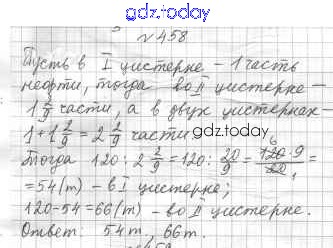 gdz.today
№458
Пусть в I цистерне – 1 часть
нефти, тогда во II цистерне –
1 2/9 части, а в двух цистернах –
1 + 1 2/9 = 2 2/9 части
gdz.today
Тогда 120 : 2 2/9 = 120 : 20/9 = 120·9/20 =
= 54 (т) – в I цистерне;
120-54=66 (т) – во II цистерне.
Ответ: 54 т, 66 т.